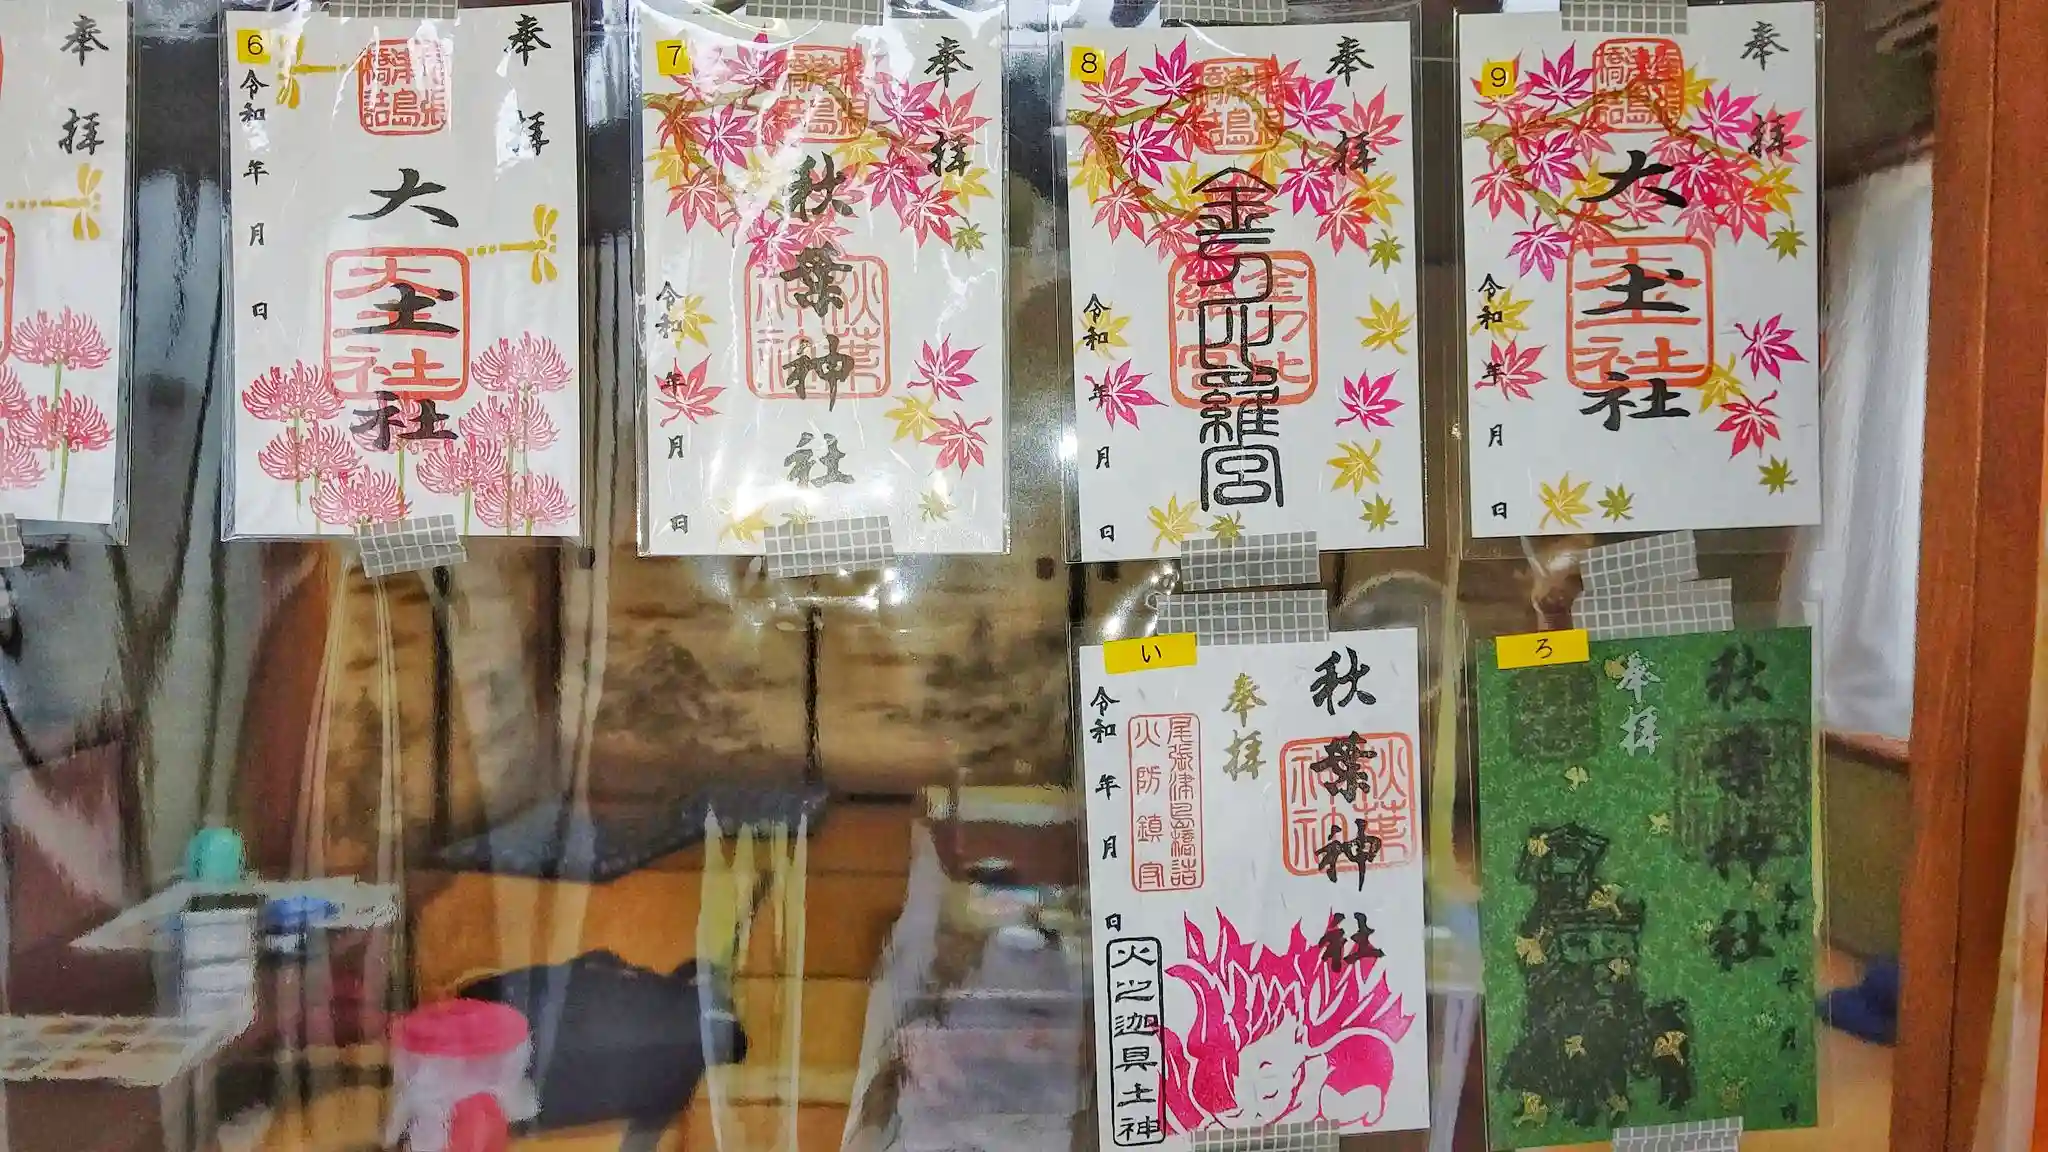 奉拝
6
奉拝
尾張津島橋詰
大土社
大土社
令和 年 月 日
7
奉拝
尾張津島橋詰
秋葉神社
秋葉神社
令和 年 月 日
8
奉拝
尾張津島橋詰
金刀比羅宮
金刀比羅宮
令和 年 月 日
9
奉拝
尾張津島橋詰
大土社
大土社
令和 年 月 日
い
秋葉神社
秋葉神社
奉拝
尾張津島橋詰
火防鎮守
令和 年 月 日
火之迦具土神
ろ
秋葉神社
奉拝
令和 年 月 日